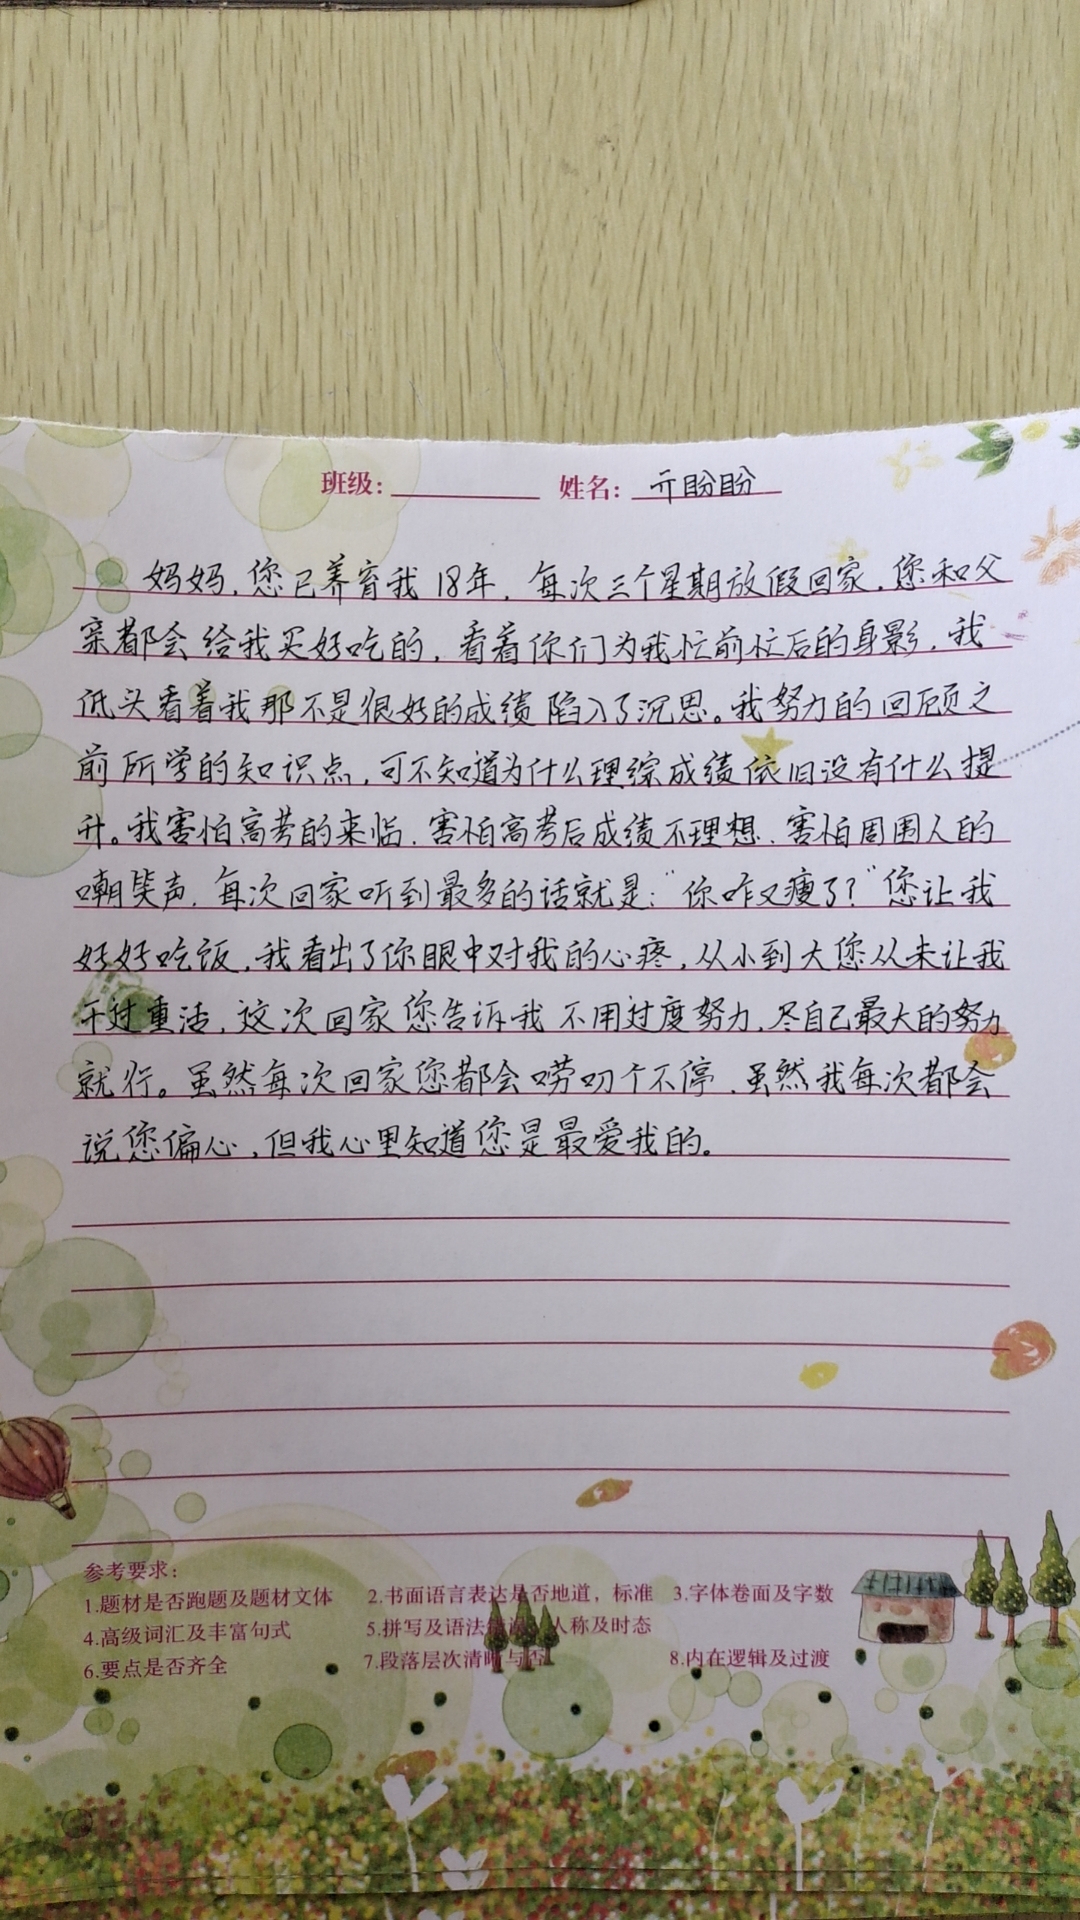 班级： 姓名：亓盼盼
妈妈，您已养育我18年，每次三个星期放假回家，您和父
亲都会给我买好吃的，看着你们为我忙前忙后的身影，我
低头看着我那不是很好的成绩陷入了沉思。我努力的回顾之
前所学的知识点，可不知道为什么理综成绩依旧没有什么提
升。我害怕高考的来临，害怕高考后成绩不理想，害怕周围人的
嘲笑声，每次回家听到最多的话就是：“你咋又瘦了？”您让我
好好吃饭，我看出了你眼中对我的心疼，从小到大您从未让我
干过重活，这次回家您告诉我不用过度努力，尽自己最大的努力
就行。虽然每次回家您都会唠叨个不停，虽然我每次都会
说您偏心，但我心里知道您是最爱我的。
参考要求：
1.题材是否跑题及题材文体 2.书面语言表达是否地道，标准 3.字体卷面及字数
4.高级词汇及丰富句式 5.拼写及语法 人称及时态
6.要点是否齐全 7.段落层次清晰与否 8.内在逻辑及过渡